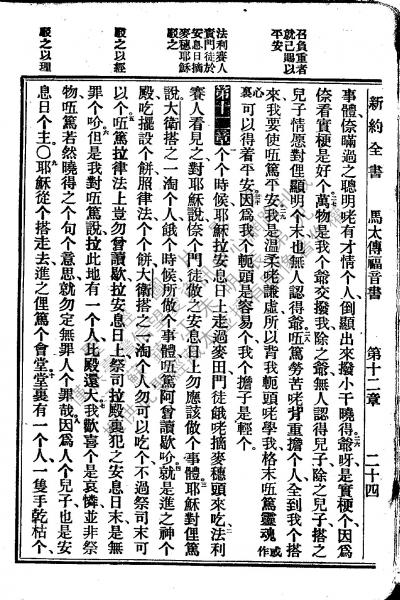 新約全書　馬太傳福音書　第十二章　二十四
召負重者
就己賜以
平安
事體倷瞞過之聰明咾有才情个人倒顯出來撥小干曉得爺呀是實梗个因爲
倷看實梗是好个萬物是我个爺交撥我除之爺無人認得兒子除之兒子搭之
兒子情愿對俚顯明个末也無人認得爺㕶篤勞苦咾背重擔个人全到我个搭
來我要使㕶篤平安我是溫柔咾謙虛所以背我軛頭咾學我格末㕶篤靈魂或作
心裏可以得着平安因爲我个軛頭是容易个我个擔子是輕个
法利賽人
責門徒於
安息日摘
麥穗耶穌
駁之
第十二章个个時候耶穌拉安息日上走過麥田門徒餓咾摘麥穗頭來吃法利
賽人看見之對耶穌說倷个門徒做之安息日上勿應該做个事體耶穌對俚篤
說大衛搭之一淘个人餓个時候所做个事體㕶篤阿曾讀歇吤就是進之神个
殿吃擺設个餅照律法个个餅大衛搭之一淘个人勿可以吃个不過祭司末可
駁之以經
以个㕶篤拉律法上豈勿曾讀歇拉安息日上祭司拉殿裏犯之安息日末是無
罪个吤但是我對㕶篤說拉此地有一个人比殿還大我歡喜个是哀憐並非祭
駁之以理
物㕶篤若然曉得之个句个意思就勿定無罪人个罪哉因爲人个兒子也是安
息日个主〇耶穌從个搭走去進之俚篤个會堂堂裏有一个人一隻手乾枯个